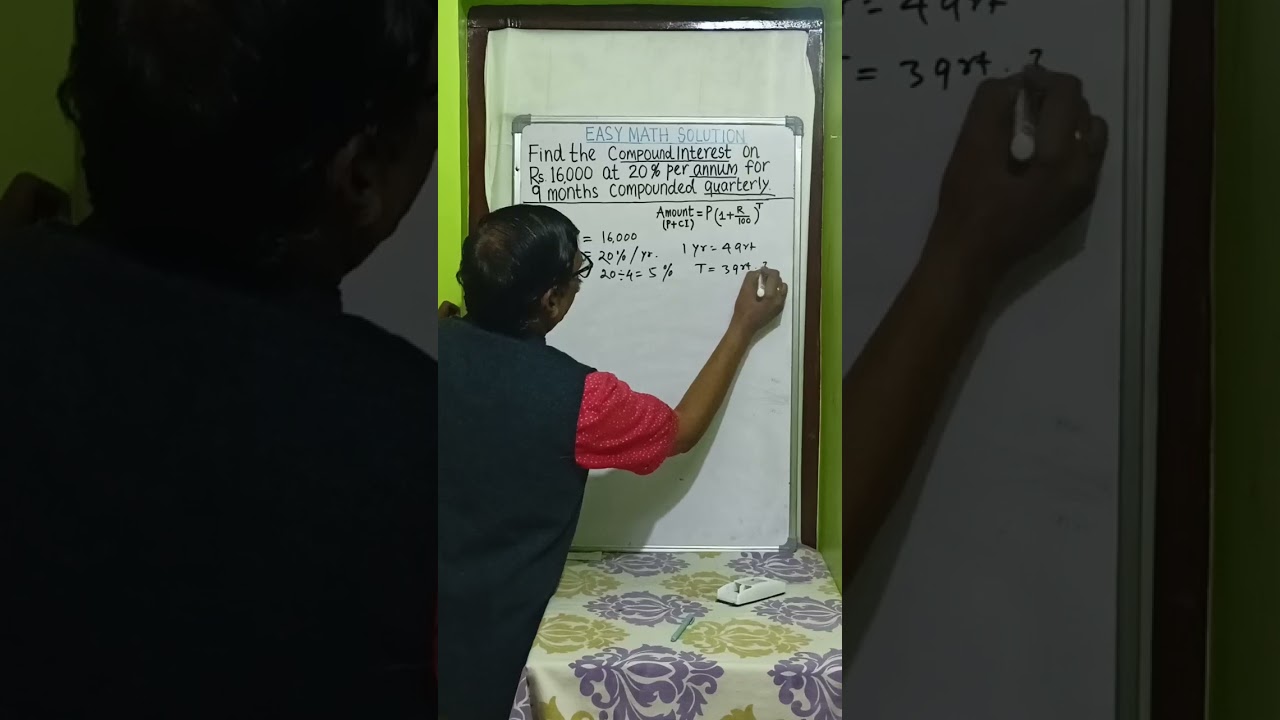 EASY MATH SOLUTION
Find the Compound Interest on
Rs. 16,000 at 20% per annum for
9 months compounded quarterly.
Amount = P(1+R/100)^T
(P+CI)
= 16,000
= 20% / yr. 1 yr = 4 qrt
20÷4 = 5 % T = 3 qrt
= 3 qrt